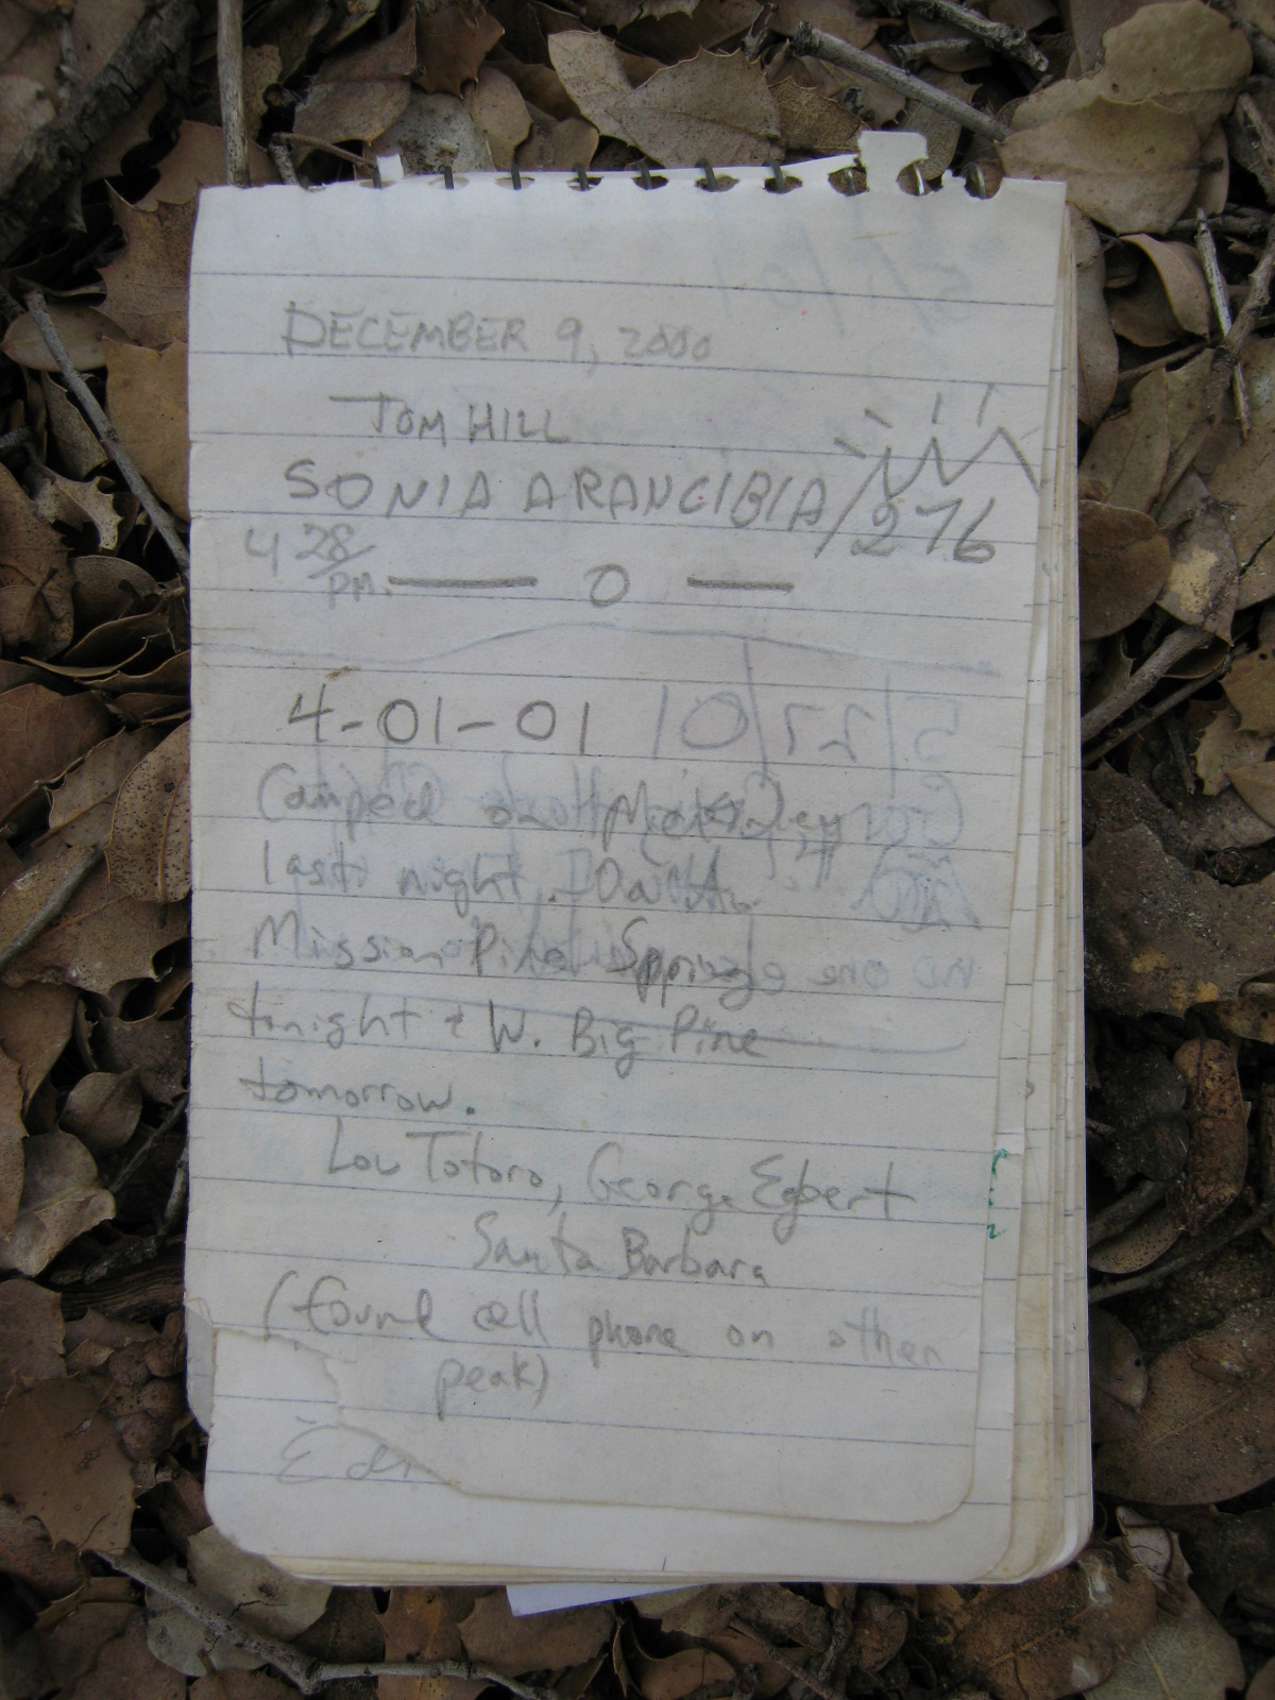 DECEMBER 9, 2000
TOM HILL
SONIA ARANCIBIA/276
4 28 PM. — O —
4-01-01
Camped on McKinley
last night.
Mission Pine Springs
tonight & W. Big Pine
tomorrow.
Lou Totoro, George Egbert
Santa Barbara
(found cell phone on other
peak)